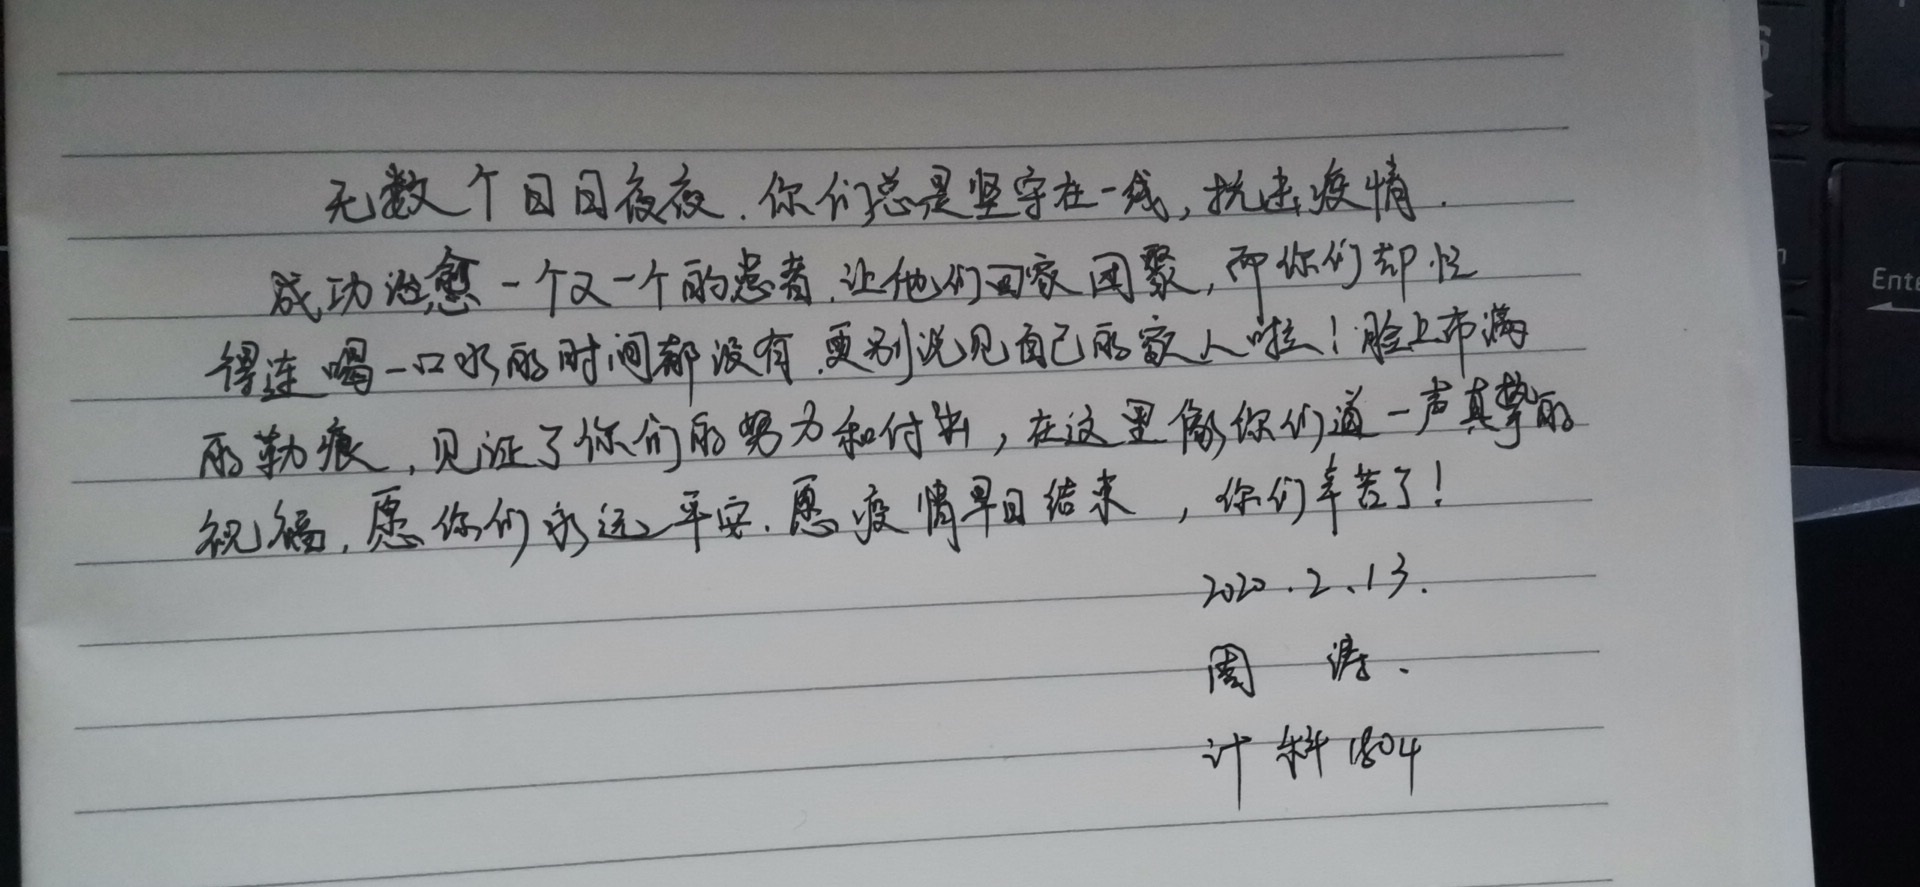 无数个日日夜夜.你们总是坚守在一线,抗击疫情.
成功治愈一个又一个的患者.让他们回家团聚,而你们却忙
得连喝一口水的时间都没有.更别说见自己的家人啦!脸上布满
的勒痕,见证了你们的努力和付出,在这里像你们道一声真挚的
祝福,愿你们永远平安.愿疫情早日结束,你们辛苦了!
2020.2.13.
周涛.
计科1804
Ente